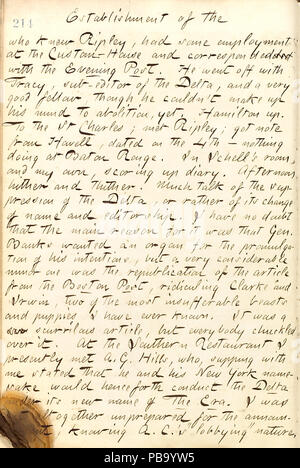 211
Establishment of the
who knew Ripley, had some employment
at the Custom-House and corresponded
with the Evening Post. He went off with
Tracy, sub-editor of the Delta, and a very
good fellow, though he couldn't make up
his mind to abolition, yet. Hamilton up.
To the St Charles; met Ripley; got note
from Howell, dated on the 4th — nothing
doing at Baton Rouge. In Schell's room
and my own, scoring up diary. Afternoon
hither and thither. Much talk of the sup-
pression of the Delta, or rather of its change
of name and editorship. I have no doubt
that the main reason for it was that Gen.
Banks wanted an organ for the promulga-
tion of his intentions, but a very considerable
minor one was the republication of the article
from the Boston Post, ridiculing Clarke and
Irwin, two of the most insufferable beasts
and puppies I have ever known. It was a
scurrilous article, but everybody chuckled
over it. At the Southern Restaurant I
presently met A.G. Hills, who, supping with
me stated that he and his New York name-
sake would henceforth conduct the Delta
under its new name of The Era. I was
altogether unprepared for the announ-
knowing A.G.'s "lobbying" nature,
alamy
Image ID: PB9YW5
www.alamy.com